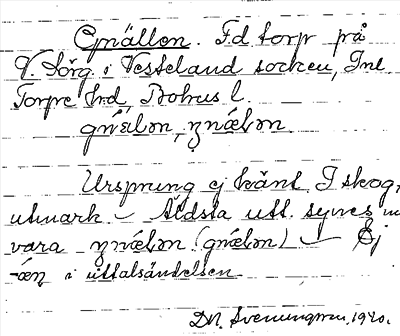 Gnällen. F.d. torp på
V. Sörg. i Vesteland socken, Inl.
Torpe hd, Bohus l.
gnǽlən, ŋnǽlən.
Ursprung ej känt. I skog,
utmark. – Äldsta utt. synes
vara ŋnǽlən (gnǽlən) – Ej
-än i uttalsändelsen.
Dr. Svenungsson, 1920.